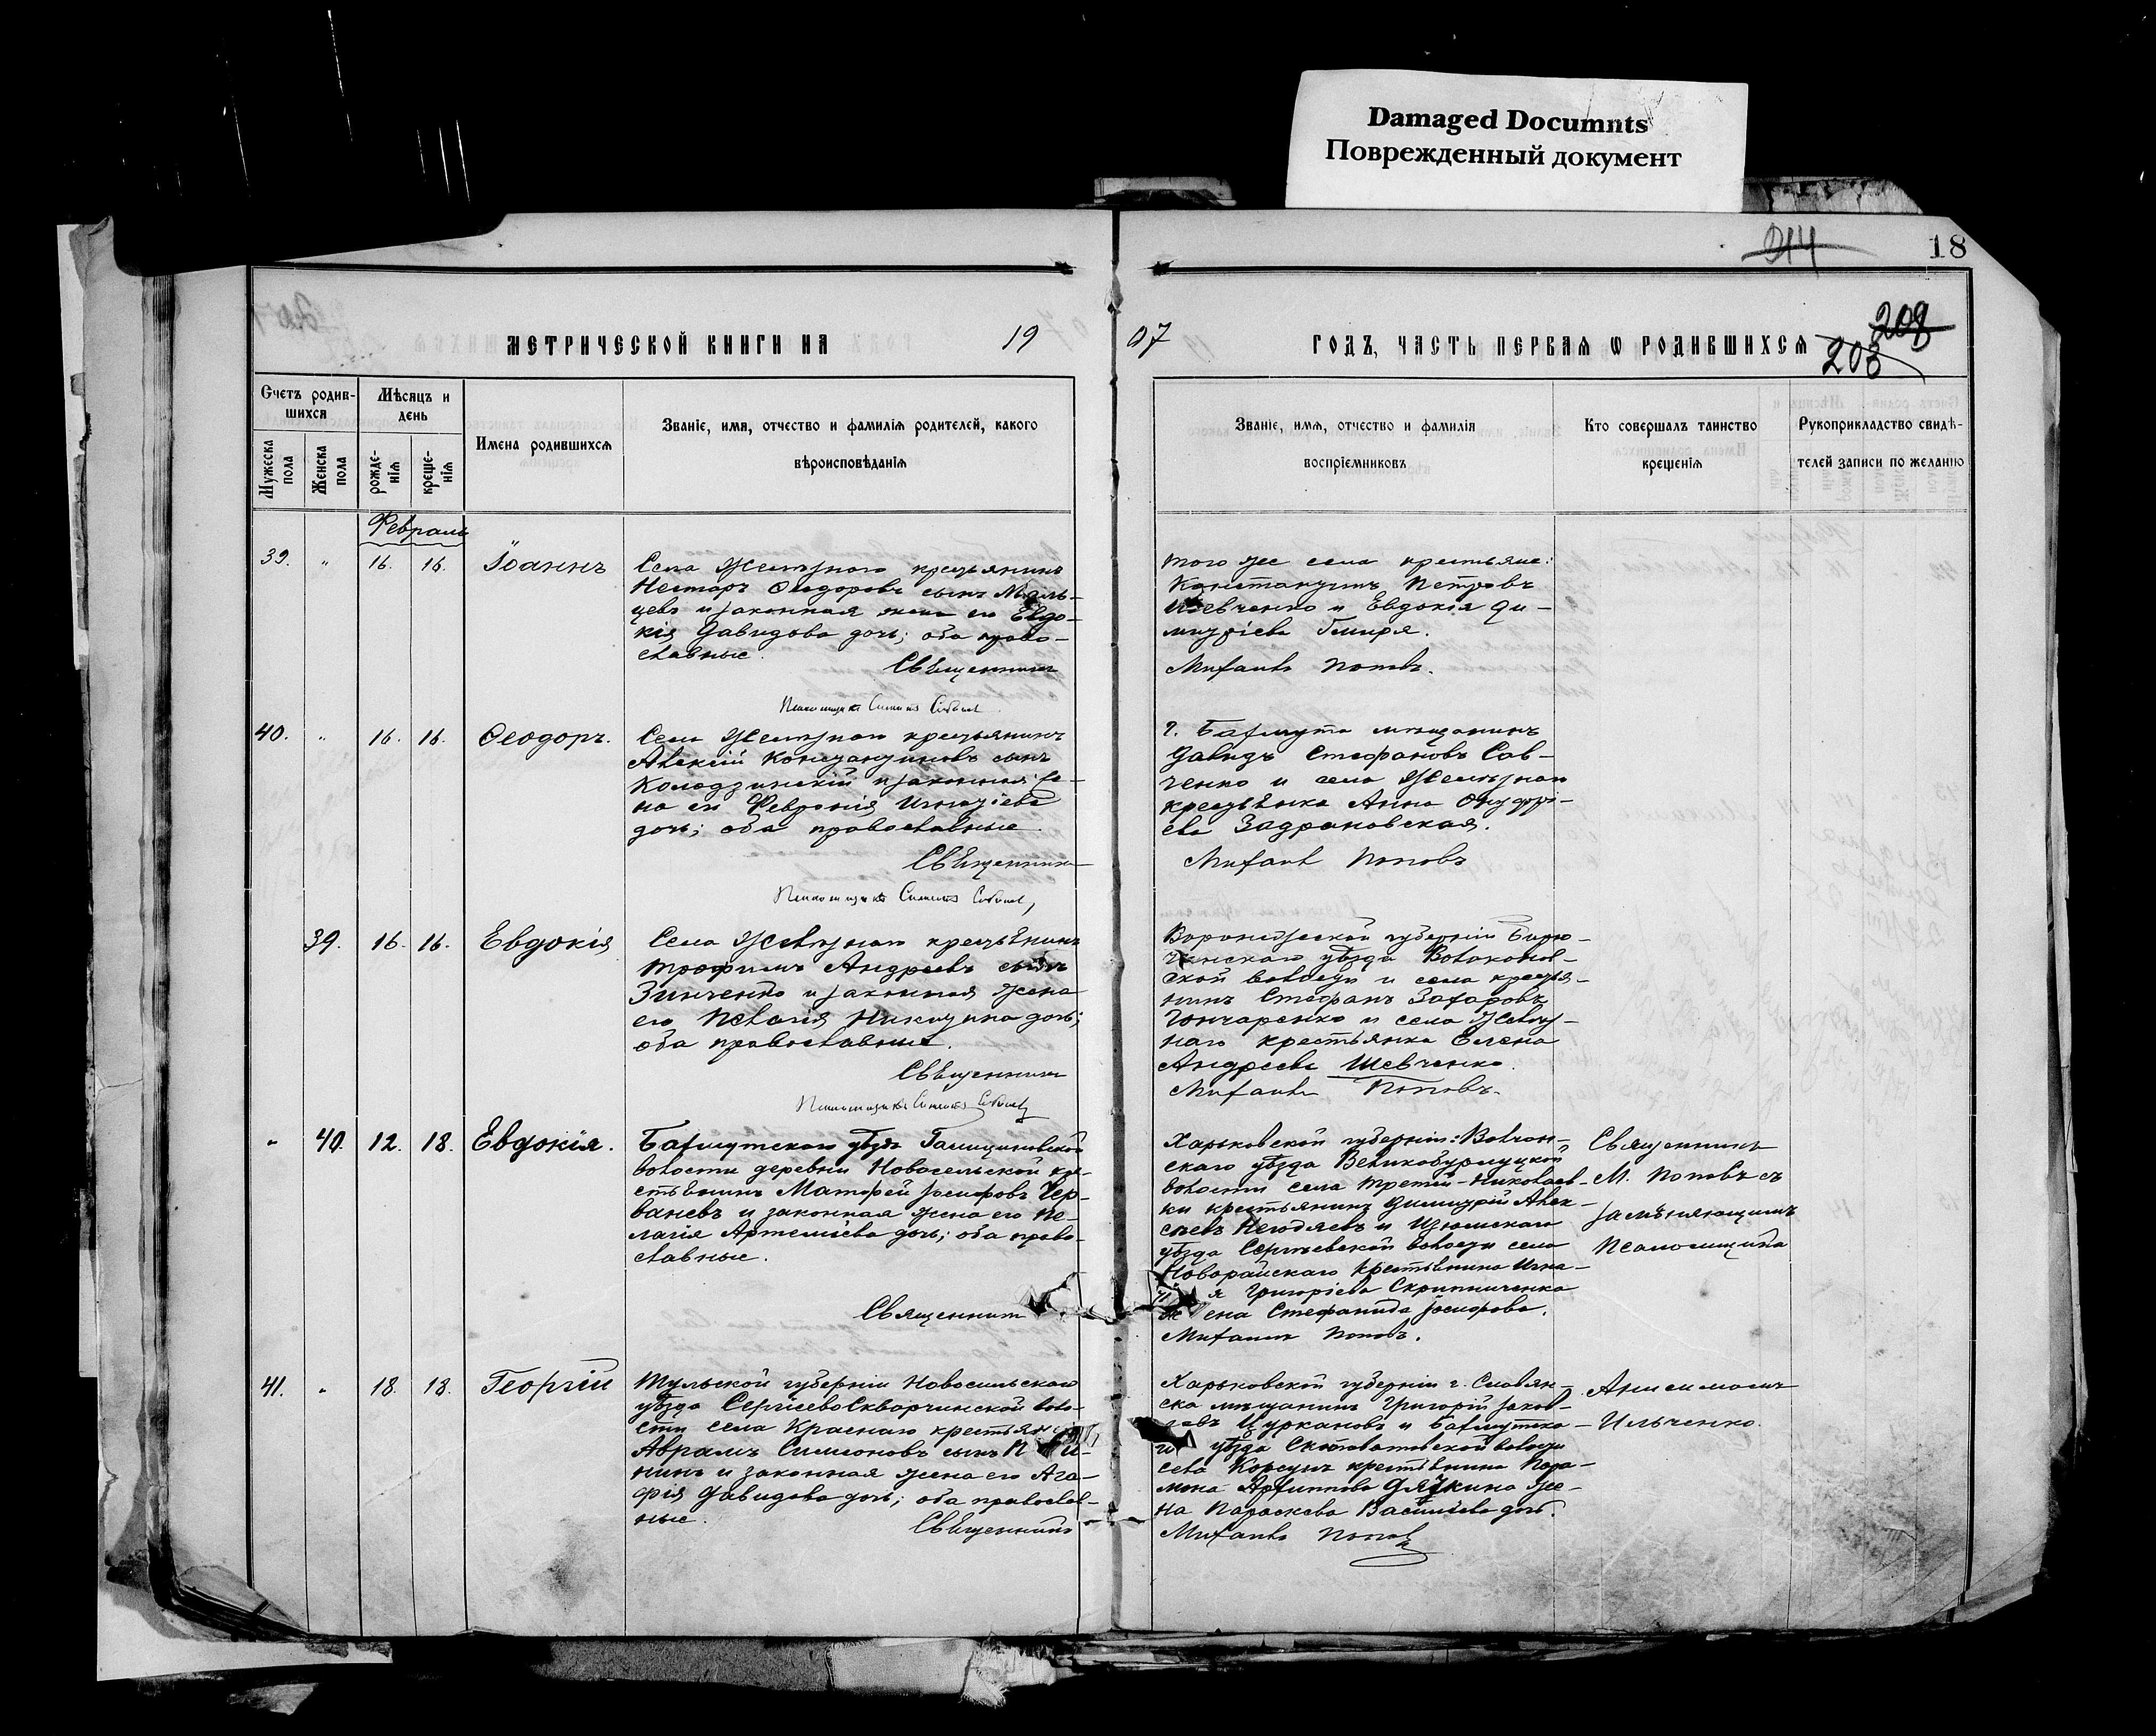 Damaged Documnts
Поврежденный документ
18
214
208
203
МЕТРИЧЕСКОЙ КНИГИ НА 19
07 ГОДЪ, ЧАСТЬ ПЕРВАЯ Ѡ РОДИВШИХСЯ
Счетъ родив-
шихся
Мужеска пола
Женска пола
Мѣсяцъ и
день
рожде-
нія
креще-
нія
Имена родившихся
Званіе, имя, отчество и фамилія родителей, какого
вѣроисповѣданія
Званіе, имя, отчество и фамилія
воспріемниковъ
Кто совершалъ таинство
крещенія
Рукоприкладство свидѣ-
телей записи по желанію
Февраль
39. " 16. 16. Іоаннъ
Села Желѣзнаго крестьянинъ
Несторъ Ѳеодоровъ сынъ Маль-
цевъ и законная жена его Евдо-
кія Давидова дочь; оба право-
славные.
Священникъ
того же села крестьяне:
Константинъ Петровъ
Шевченко и Евдокія Ди-
митріева Гмиря.
Михаилъ Поповъ.
Псаломщикъ Симеонъ
40. " 16. 16. Ѳеодоръ.
Села Желѣзнаго крестьянинъ
Алексій Константиновъ сынъ
Колодзинскій и законная же-
на его Февронія Игнатіева
дочь; оба православные
Священникъ
г. Бахмута мѣщанинъ
Давидъ Стефановъ Сав-
ченко и села Желѣзнаго
крестьянка Анна Онуфрі-
ева Задрановская.
Михаилъ Поповъ
Псаломщикъ Симеонъ
39. 16. 16. Евдокія
Села Желѣзнаго крестьянинъ
Трофимъ Андреевъ сынъ
Зинченко и законная жена
его Пелагія Никитина дочь;
оба православные.
Священникъ
Воронежской губерніи Бирю-
ченскаго уѣзда Волоконов-
ской волости и села крестья-
нинъ Стефанъ Захаровъ
Гончаренко и села Желѣз-
наго крестьянка Елена
Андреева Шевченко.
Михаилъ Поповъ.
Псаломщикъ Симеонъ
" 40. 12. 18. Евдокія.
Бахмутскаго уѣзда Галициновской
волости деревни Новосельской кре-
стьянинъ Матѳей Іосифовъ Чер-
ваневъ и законная жена его Пе-
лагія Артеміева дочь; оба право-
славные.
Священникъ
Харьковской губерніи: Волчан-
скаго уѣзда Великобурлуцкой
волости села Третей-Николаев-
ки крестьянинъ Димитрій Алек-
сѣевъ Негодяевъ и Изюмскаго
уѣзда Сергѣевской волости села
Новорайскаго крестьянина Игна-
я Григоріева Скрипниченка
жена Стефанида Іосифова.
Михаилъ Поповъ.
Священникъ
М. Поповъ съ
замѣняющимъ
Псаломщика
41. " 18. 18. Георгій
Тульской губерніи Новосильскаго
уѣзда СергіевоСкварчинской воло-
сти села Краснаго крестьянинъ
Аврамъ Симеоновъ сынъ
нинъ и законная жена его Ага-
фія Давидова дочь; оба православ-
ные.
Священникъ
Харьковской губерніи г. Славян-
ска мѣщанинъ Григорій Іаков-
левъ Цуркановъ и Бахмутска-
го уѣзда Скотоватовской волости
села Корсунь крестьянина Пара-
мона Архиппова Дячкина же-
на Параскева Васильева дочь.
Михаилъ Поповъ
Анисимомъ
Ильченко.